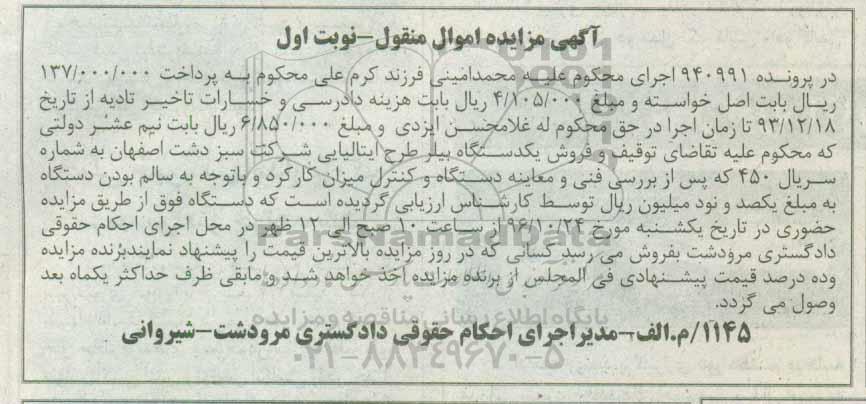 آگهی مزایده اموال منقول-نوبت اول
در پرونده ۹۴۰۹۹۱ اجرای محکوم علیه محمدامینی فرزند کرم علی محکوم به پرداخت ۱۳۷/۰۰۰/۰۰۰
ریال بابت اصل خواسته و مبلغ ۴/۱۰۵/۰۰۰ ریال بابت هزینه دادرسی و خسارات تاخیر تادیه از تاریخ
۹۳/۱۲/۱۸ تا زمان اجرا در حق محکوم له غلامحسن ایزدی و مبلغ ۶/۸۵۰/۰۰۰ ریال بابت نیم عشر دولتی
که محکوم علیه تقاضای توقیف و فروش یکدستگاه بیلر طرح ایتالیایی شرکت سبز دشت اصفهان به شماره
سریال ۴۵۰ که پس از بررسی فنی و معاینه دستگاه و کنترل میزان کارکرد و باتوجه به سالم بودن دستگاه
به مبلغ یکصد و نود میلیون ریال توسط کارشناس ارزیابی گردیده است که دستگاه فوق از طریق مزایده
حضوری در تاریخ یکشنبه مورخ ۹۶/۱۰/۲۴ از ساعت ۱۰ صبح الی ۱۲ ظهر در محل اجرای احکام حقوقی
دادگستری مرودشت بفروش می رسد کسانی که در روز مزایده بالاترین قیمت را پیشنهاد نمایندبرنده مزایده
وده درصد قیمت پیشنهادی فی المجلس از برنده مزایده اخذ خواهد شد و مابقی ظرف حداکثر یکماه بعد
وصول می گردد.
۱۱۴۵/م.الف-مدیراجرای احکام حقوقی دادگستری مرودشت-شیروانی
ParsNamadData
پایگاه اطلاع رسانی مناقصه و مزایده
۰۲۱-۸۸۳۴۹۶۷۰-۵